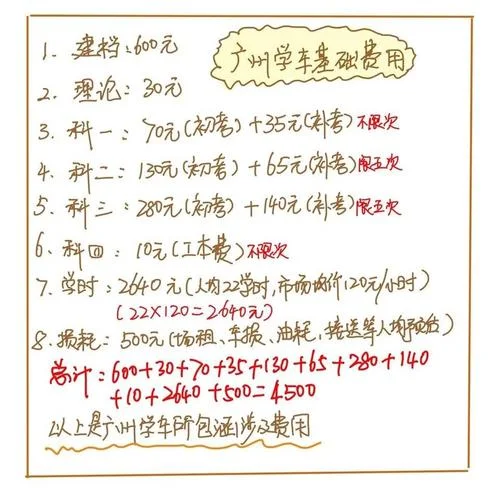 广州学车基础费用
1. 建档:600元
2. 理论:30元
3. 科一:70元(初考)+35元(补考)不限次
4. 科二:130元(初考)+65元(补考)限五次
5. 科三:280元(初考)+140元(补考)限五次
6. 科四:10元(工本费)不限次
7. 学时:2640元(人均22学时,市场均价120元/小时)
(22×120=2640元)
8. 损耗:500元(场租、车损、油耗,接送等人均预估)
总计:600+30+70+35+130+65+280+140
+10+2640+500=4500
以上是广州学车所包涵涉及费用